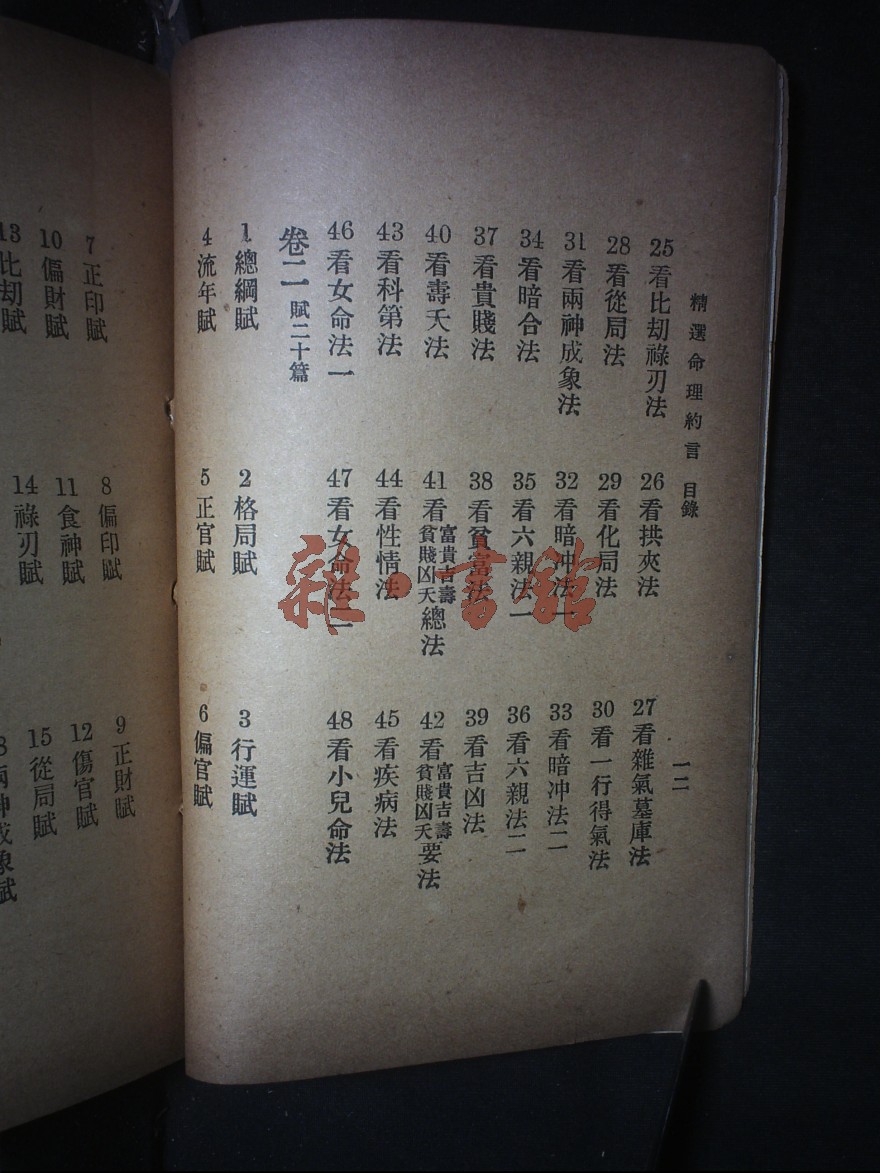 精選命理約言 目錄
一二
25 看比刧祿刃法
26 看拱夾法
27 看雜氣墓庫法
28 看從局法
29 看化局法
30 看一行得氣法
31 看兩神成象法
32 看暗冲法一
33 看暗冲法二
34 看暗合法
35 看六親法一
36 看六親法二
37 看貴賤法
38 看貧富法
39 看吉凶法
40 看壽夭法
41 看富貴吉壽貧賤凶夭總法
42 看富貴吉壽貧賤凶夭要法
43 看科第法
44 看性情法
45 看疾病法
46 看女命法一
47 看女命法二
48 看小兒命法
卷二 賦二十篇
1 總綱賦
2 格局賦
3 行運賦
4 流年賦
5 正官賦
6 偏官賦
7 正印賦
8 偏印賦
9 正財賦
10 偏財賦
11 食神賦
12 傷官賦
13 比刧賦
14 祿刃賦
15 從局賦
兩神成象賦
雜·書館